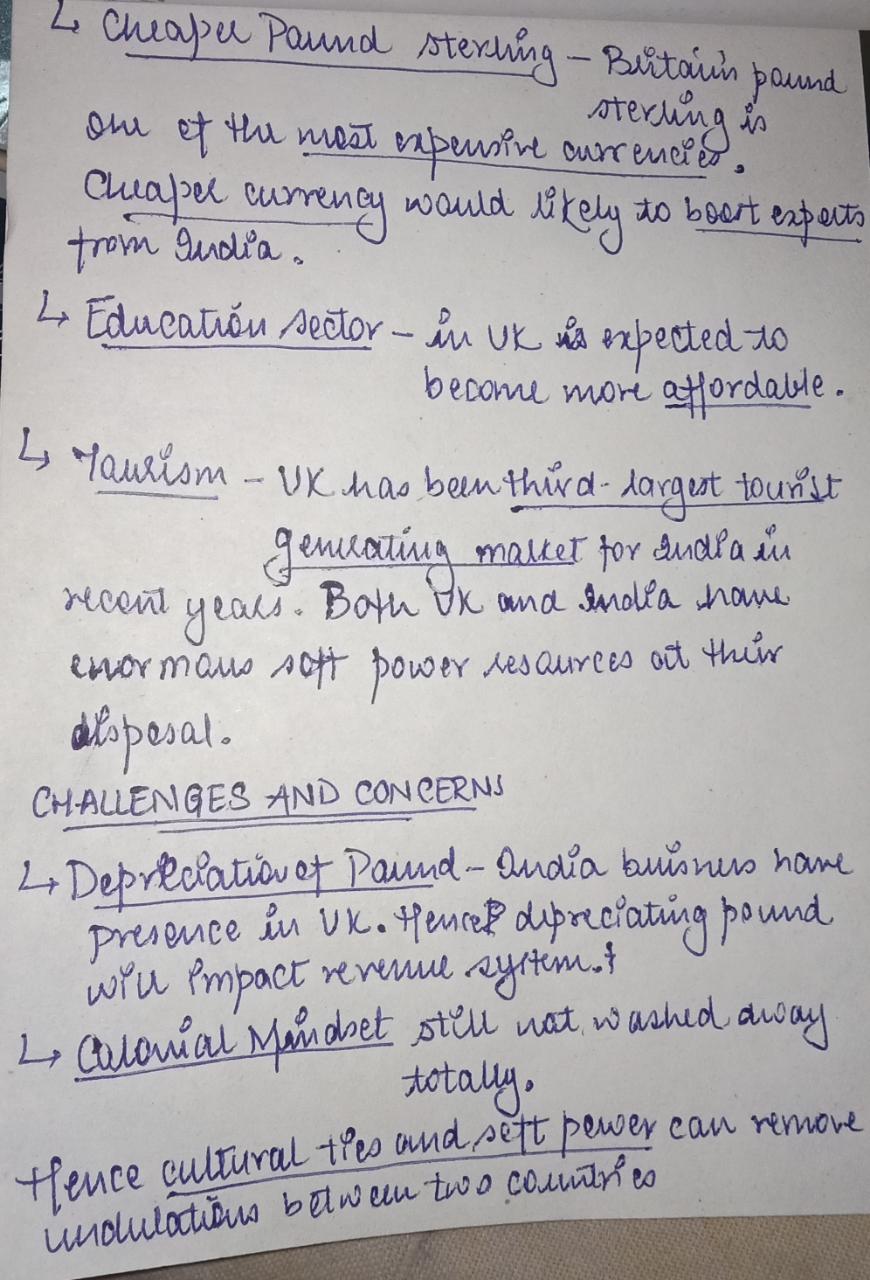 ↳ Cheaper Pound sterling – Britain's pound
sterling is
one of the most expensive currencies.
Cheaper currency would likely to boost exports
from India.
↳ Education sector – in UK is expected to
become more affordable.
↳ Tourism – UK has been third-largest tourist
generating market for India in
recent years. Both UK and India have
enormous soft power resources at their
disposal.
CHALLENGES AND CONCERNS
↳ Depreciation of Pound – India buisness have
presence in UK. Hence depreciating pound
will impact revenue system.
↳ Colonial Mindset still not washed away
totally.
Hence cultural ties and soft power can remove
undulations between two countries